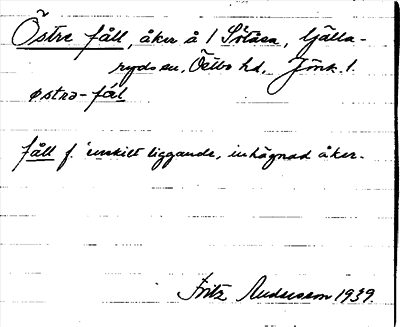 Östre fåll, åker å 1 Sötåsa, Gälla-
ryds sn, Östbo hd, Jönk. l.
østrə-fål
fåll f. 'enskilt liggande, inhägnad åker.
Fritz Andersson 1939